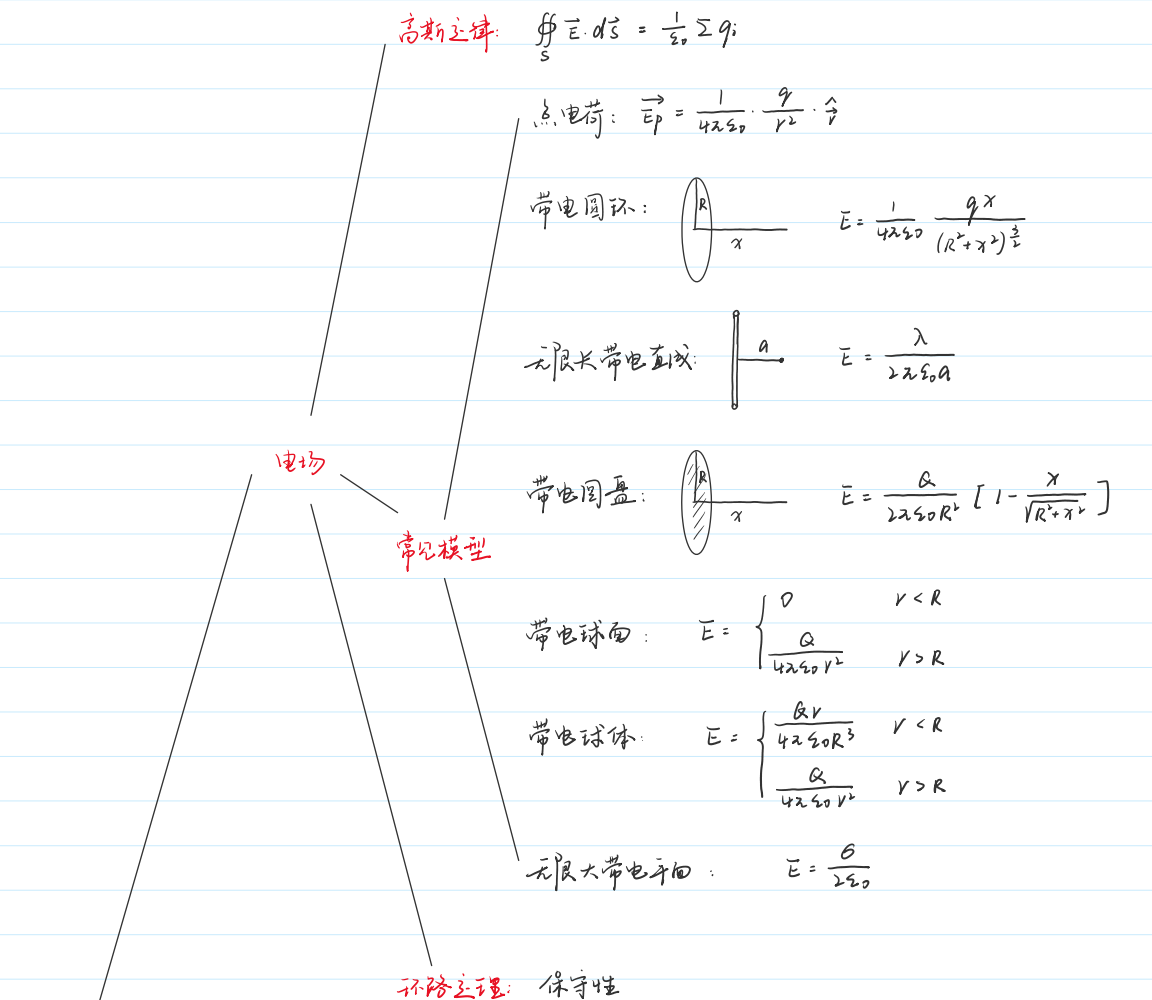 高斯定律: ∯_S E⃗·dS⃗ = 1/ε₀ Σqᵢ
点电荷: E⃗p = 1/(4πε₀) · q/r² · r̂
带电圆环: R x E = 1/(4πε₀) qx/(R²+x²)^(3/2)
无限长带电直线: a E = λ/(2πε₀a)
带电圆盘: R x E = Q/(2πε₀R²) [1 - x/√(R²+x²)]
电场
常见模型
带电球面: E = { 0 r < R
Q/(4πε₀r²) r > R
带电球体: E = { Qr/(4πε₀R³) r < R
Q/(4πε₀r²) r > R
无限大带电平面: E = σ/(2ε₀)
环路定理: 保守性